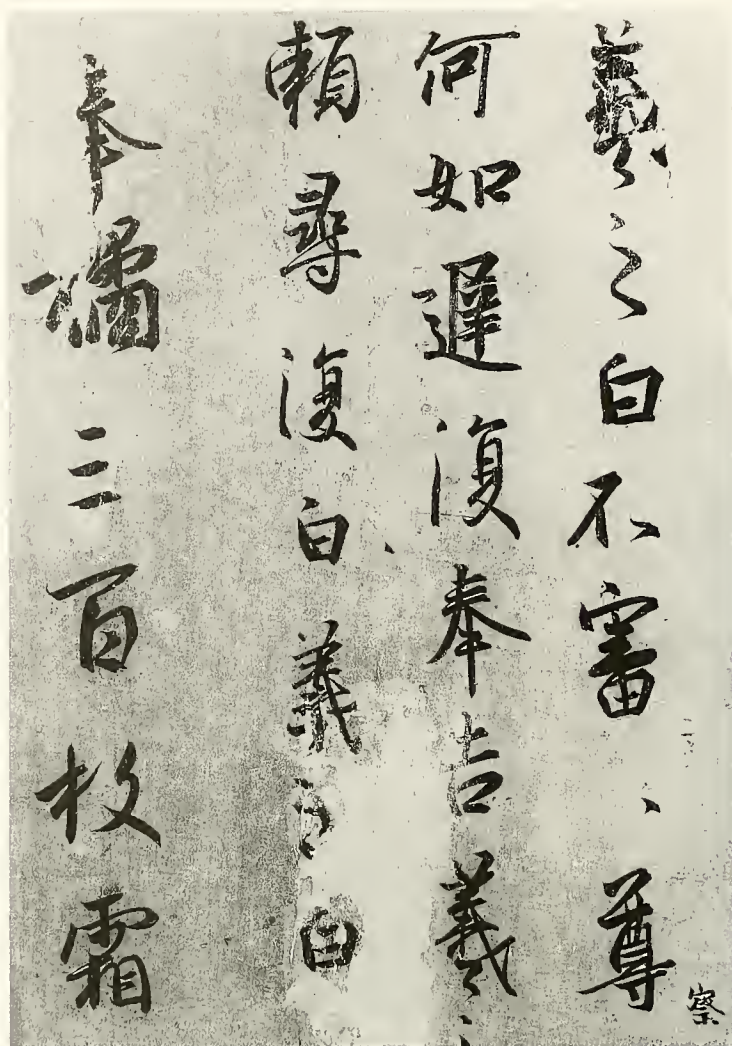 羲之白不審、尊
察
何如遲復奉告羲
賴尋復白羲之白
奉橘三百枚霜